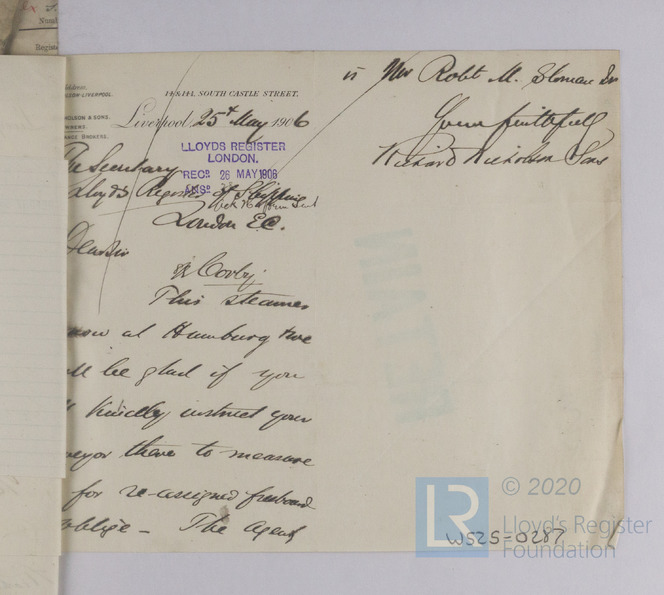 14 & 14A, SOUTH CASTLE STREET,
Liverpool, 25th May 1906
LLOYDS REGISTER
LONDON.
RECD 26 MAY 1906
ANSD
The Secretary
Lloyds Register of Shipping
London E.C.
Dear Sir
Corby
This steamer
now at Hamburg & we
be glad if you
kindly instruct your
there to measure
for re-assigned freeboard
oblige - The Agent
is Mr Robt M. Sloman Jr
Yours faithfully
Richard Nicholson & Sons
© 2020
LR
Lloyd's Register
Foundation
WS25-0287